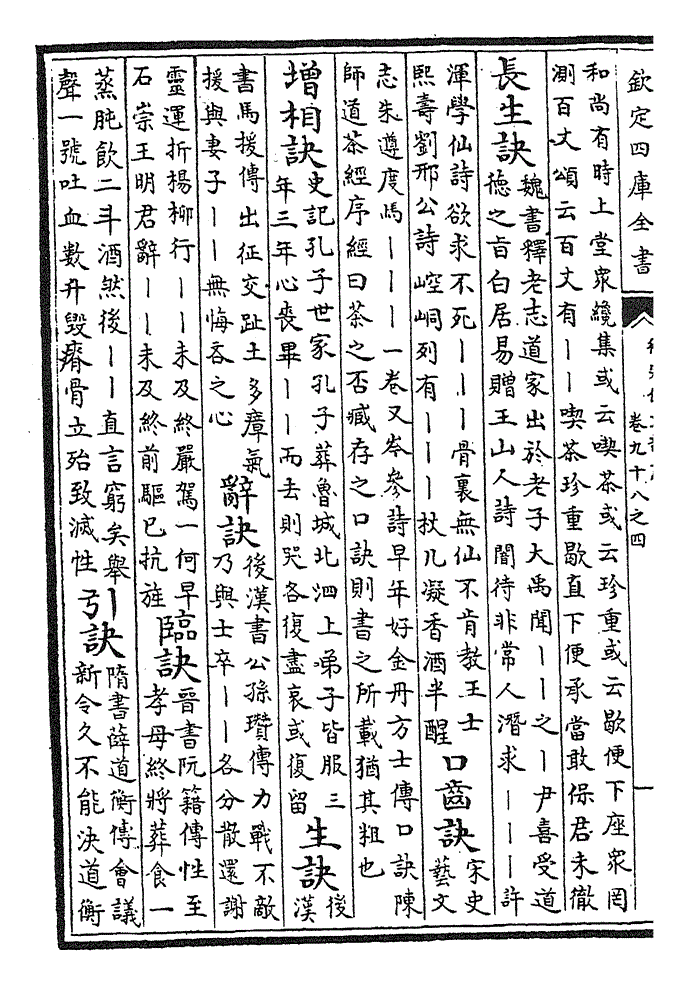 欽定四庫全書
卷九十八之四
和尚有時上堂眾纔集或云喫茶或云珍重或云歇便下座眾罔
測百丈頌云百丈有丨丨喫茶珍重歇直下便承當敢保君未徹
長生訣
魏書釋老志道家出於老子大禹聞丨丨之丨尹喜受道
德之旨白居易贈王山人詩聞待非常人潛求丨丨丨許
渾學仙詩欲求不死丨丨丨骨裏無仙不肯教王士
熙壽劉邢公詩崆峒列有丨丨丨扙几凝香酒半醒
口齒訣
宋史
藝文
志朱遵度䲭丨丨丨一卷又岑參詩早年好金丹方士傳口訣陳
師道茶經序經曰茶之否臧存之口訣則書之所載猶其粗也
增相訣
史記孔子世家孔子葬魯城北泗上弟子皆服三
年三年心喪畢丨丨而去則哭各復盡哀或復留
生訣
後
漢
書馬援傳出征交趾土多瘴氣
援與妻子丨丨無悔吝之心
辭訣
後漢書公孫瓚傳力戰不敵
乃與士卒丨丨各分散還謝
靈運折楊柳行丨丨未及終嚴駕一何早
石崇王明君辭丨丨未及終前驅已抗旌
臨訣
晉書阮籍傳性至
孝母終將葬食一
蒸肫飲二斗酒然後丨丨直言窮矣舉
聲一號吐血數升毀瘠骨立殆致滅性
引訣
隋書薛道衡傳會議
新令久不能決道衡